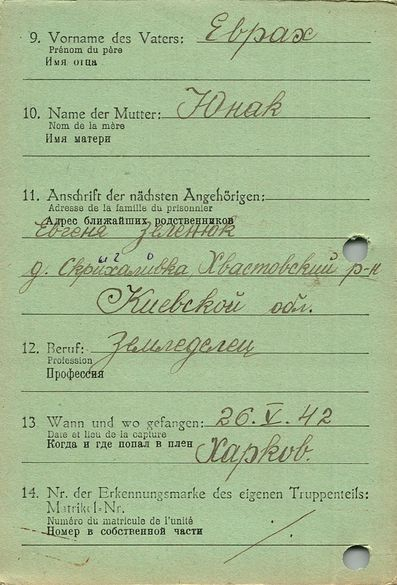 9. Vorname des Vaters: Еврах
Prénom du père
Имя отца
10. Name der Mutter: Юнак
Nom de la mère
Имя матери
11. Anschrift der nächsten Angehörigen:
Adresse de la famille du prisonnier
Адрес ближайших родственников
Евгеня Зеленюк
д. Скрихалівка, Хвастовский р-н
Киевской обл.
12. Beruf: Земледелец
Profession
Профессия
13 Wann und wo gefangen: 26. V. 42
Date et lieu de la capture
Когда и где попал в плен Харков.
14. Nr. der Erkennungsmarke des eigenen Truppenteils:
Matrikel-Nr.
Numéro du matricule de l'unité
Номер в собственной части